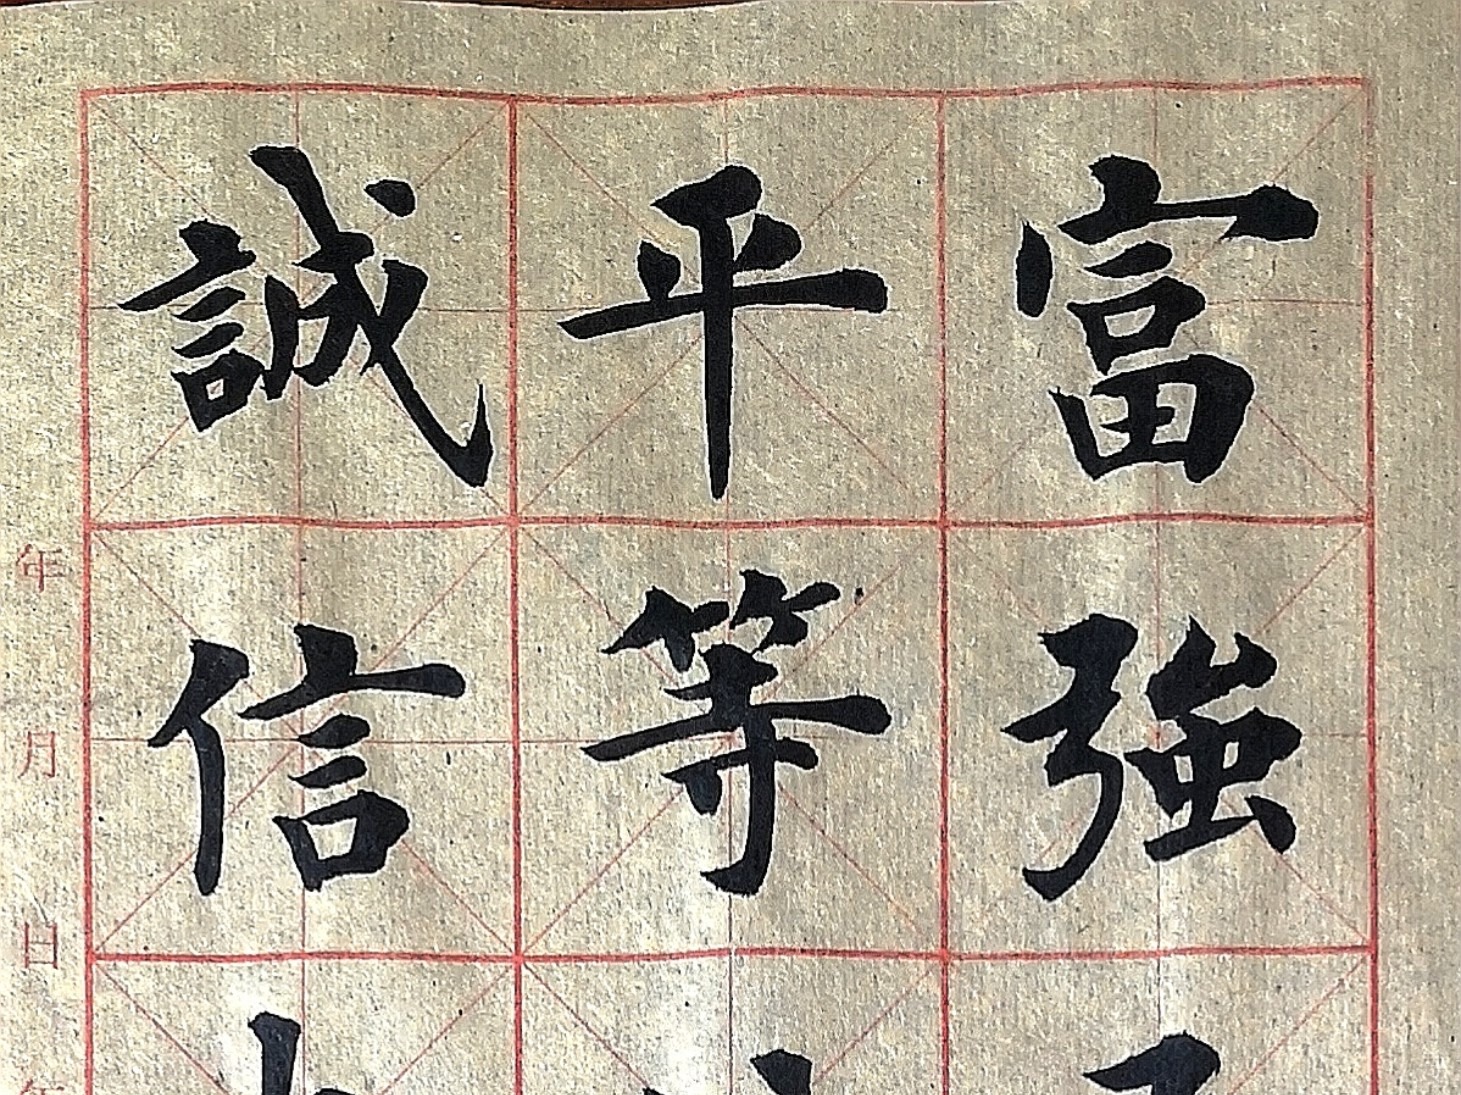 富強
平等
誠信
年月日